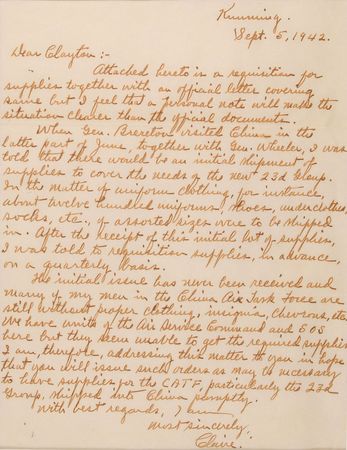 Kunming.
Sept. 5, 1942.
Dear Clayton:-
Attached hereto is a requisition for
supplies together with an official letter covering
same but I feel that a personal note will make the
situation clearer than the official documents.
When Gen. Brereton visited China in the
latter part of June, together with Gen. Wheeler, I was
told that there would be an initial shipment of
supplies to cover the needs of the new 23d Group.
In the matter of uniform clothing, for instance,
about twelve hundred uniforms, shoes, underclothes,
socks, etc., of assorted sizes were to be shipped
in. After the receipt of this initial lot of supplies,
I was told to requisition supplies, in advance,
on a quarterly basis.
The initial issue has never been received and
many of my men in the China Air Task Force are
still without proper clothing, insignia, chevrons, etc.
We have units of the Air Service Command and SOS
here but they seem unable to get the required supplies.
I am, therefore, addressing this matter to you in hope
that you will issue such orders as may be necessary
to have supplies for the CATF, particularly the 23d
Group, shipped into China promptly.
With best regards, I am
Most sincerely,
Claire.